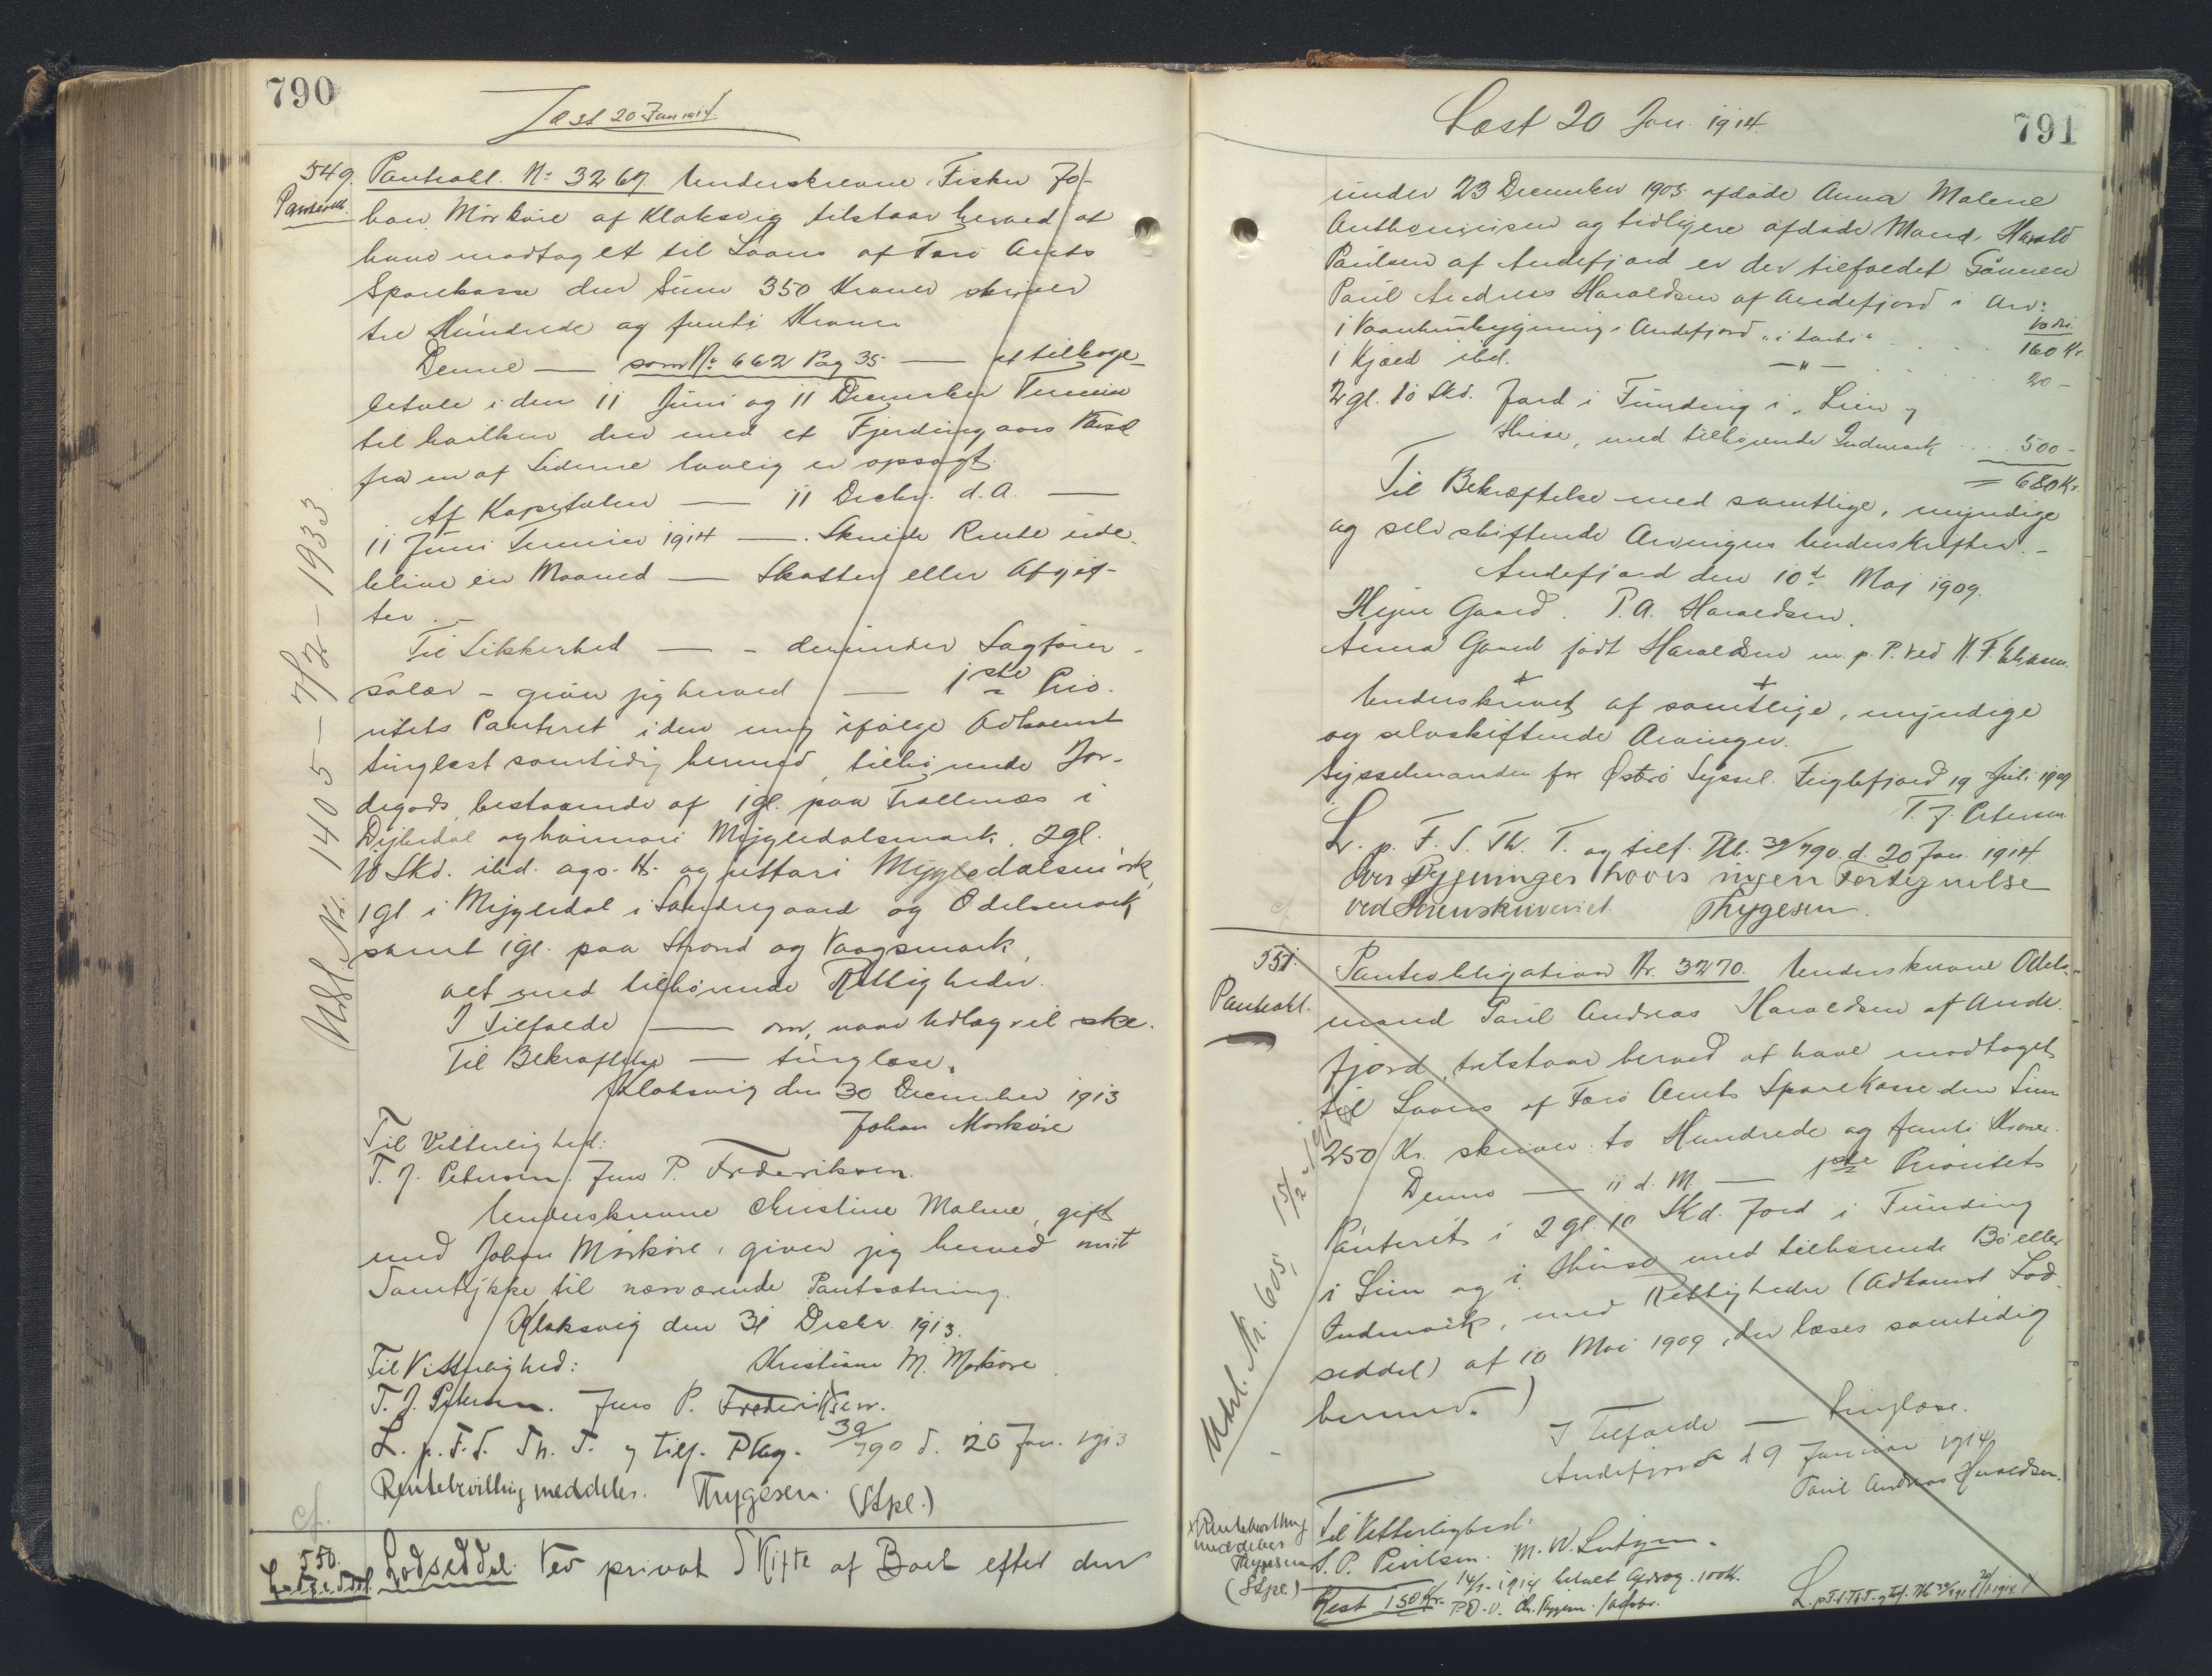 790
Læst 20 Jan 1914.
549. Pantobl. No 3269. Underskrevne, Fisker Jo-
Pantobl. han Mörköre af Klaksvig tilstaar herved at
have modtaget til Laans af Færö Amts
Sparekasse den Sum 350 Kroner skriver
tre Hundrede og femti Kroner
Denne — som No 662 Pag 35 — at tilbage-
betale i den 11 Juni og 11 December Termin
til hvilken den med et Fjerdingaars Varsel
fra en af Siderne lovlig er opsagt.
Af Kapitalen — 11 Decbr. d. A. —
11 Juni Termin 1914 — . Skulde Rente ude-
blive en Maaned — Skatter eller Afgif-
ter. —
Til Sikkerhed — - derunder Sagförer-
salær - giver jeg herved — 1ste Prio-
ritets Panteret i den mig ifölge Adkomst
tinglæst samtidig hermed, tilhörende Jor-
degods, bestaaende af 1 gl. paa Trællenæs i
Mygledalsmark, 2 gl.
10 Skd. ibd. ags. H. og uttari Mygledalsmörk,
1 gl. i Mygledal i Sandregaard og Odelsmark
samt 1 gl. paa Strond og Vaagsmark,
alt med tilhörende Rettigheder.
I Tilfælde — om, naar Udlæg vil ske.
Til Bekræftelse — tinglæse.
Klaksvig den 30 December 1913
Johan Mörköre
Til Vitterlighed:
T. J. Petersen. Jens P. Frederiksen.
Underskrevne Christine Malene, gift
med Johan Mörköre, giver jeg herved mit
Samtykke til nærværende Pantsætning.
Klaksvig den 31 Decbr. 1913.
Til Vitterlighed: Kristiane M. Mörköre.
T. J. Petersen. Jens P. Frederiksen.
L. p. F. S. Th. T. og tilf. Ptbg. 39/790 d. 20 Jan. 1913
Rentebevilling meddeles. Thygesen. (Stpl.)
Udsl. Nr. 1405 - 7/2 - 1933
cf.
550. Lodseddel. Ved privat Skifte af Boet efter den
Lodseddel.
791
Læst 20 Jan. 1914.
under 23 December 1905 afdöde Anna Malene
og tidligere afdöde Mand, Harald
Paulsen af Andefjord er der tilfaldet Sönnen
Paul Andreas Haraldsen af Andefjord i Arv:
1 Vaanhusbygning i Andefjord 160 Kr.
1 Kjald ibd. —"— 20 -
2 gl. 10 Skd. Jord i Funding i Lien og
Húse, med tilhörende Indmark 500 -
= 680 Kr.
Til Bekræftelse med samtlige, myndige
og selvskiftende Arvingers Underskrifter. -
Andefjord den 10d Maj 1909.
Hejne Gaard. P. A. Haraldsen.
Anna Gaard födt Haraldsen m. p. P. ved
Underskrevet af samtlige, myndige
og selvskiftende Arvinger.
Sysselmanden for Österö Syssel. Fuglefjord 19 Juli 1909
T. J. Petersen
L. p. F. S. Th. T. og tilf. Ptb. 39/790 d. 20 Jan. 1914.
Over Bygninger haves ingen Fortegnelse
ved Sorenskriveriet. Thygesen.
cf.
551. Panteobligation Nr. 3270. Underskrevne Odels-
Pantobl. mand Paul Andreas Haraldsen af Ande-
fjord, tilstaar herved at have modtaget
til Laans af Færö Amts Sparekasse den Sum
250 Kr. skriver: to Hundrede og femti Kroner.
Denne — 11 d. M. — 1ste Prioritets
Panterét i 2 gl. 10 Skd. Jord i Funding
i Lien og i Húse med tilhörende Bö eller
Indmark, med Rettigheder (Adkomst Lod-
seddel) af 10 Mai 1909, der læses samtidig
hermed. )
I Tilfælde — tinglæse.
Andefjord d 9 Januar 1914
Paul Andreas Haraldsen.
Til Vitterlighed:
S. P. Poulsen. M. W. Lützen.
Rentebevilling
meddeles
Thygesen
(Stpl.)
14/1 - 1914 betalt Afdrag. 100 Kr.
Rest 150 Kr.
Udsl. Nr. 605,